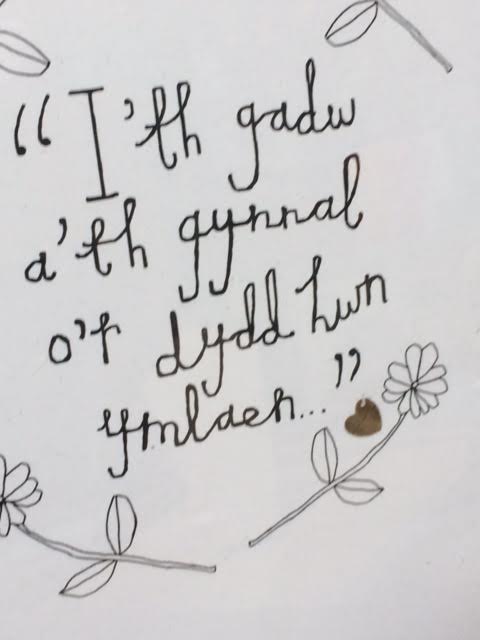 “I'th gadw
a'th gynnal
o'r dydd hwn
ymlaen...”